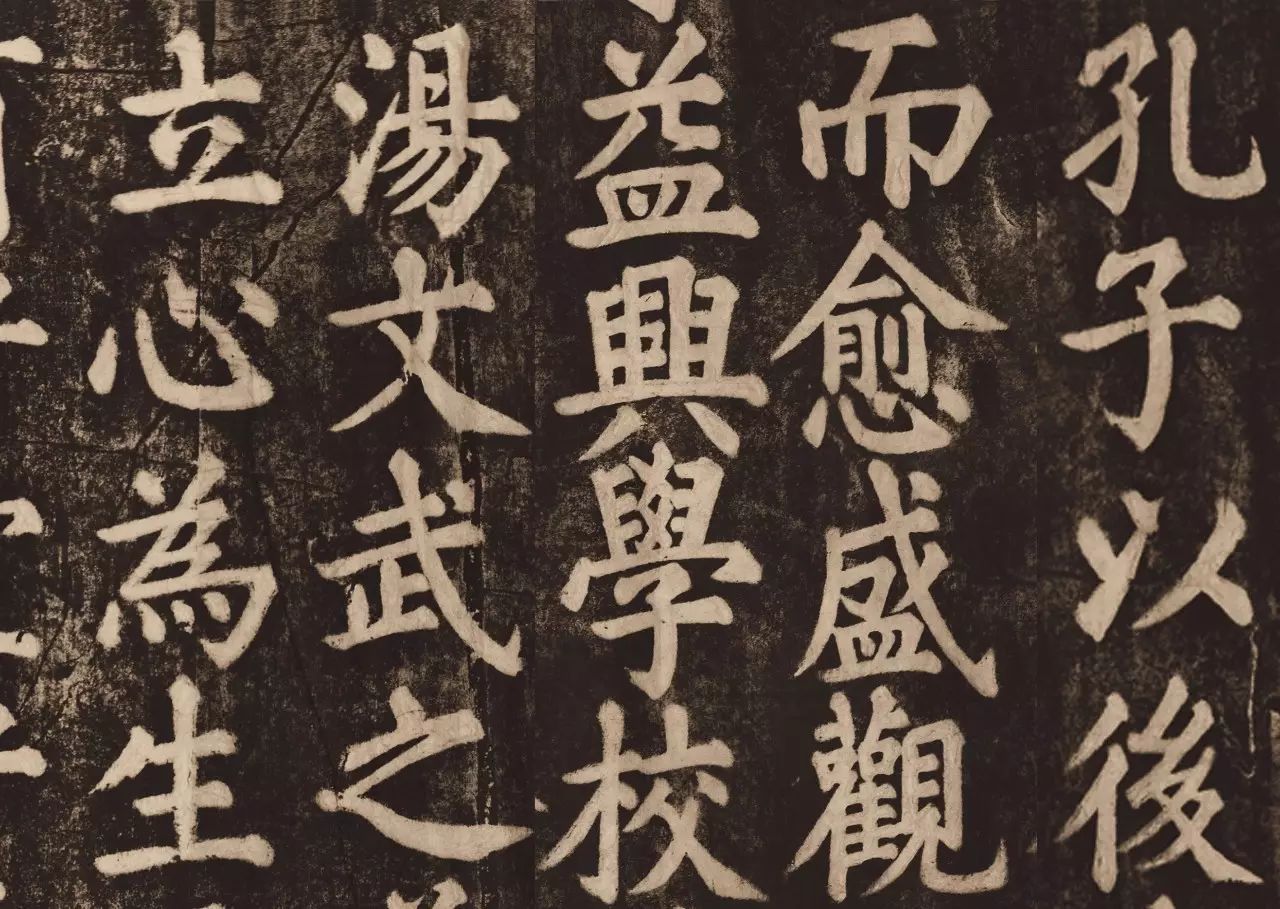 孔子以後
而愈盛觀
益興學校
湯文武之
立心為生